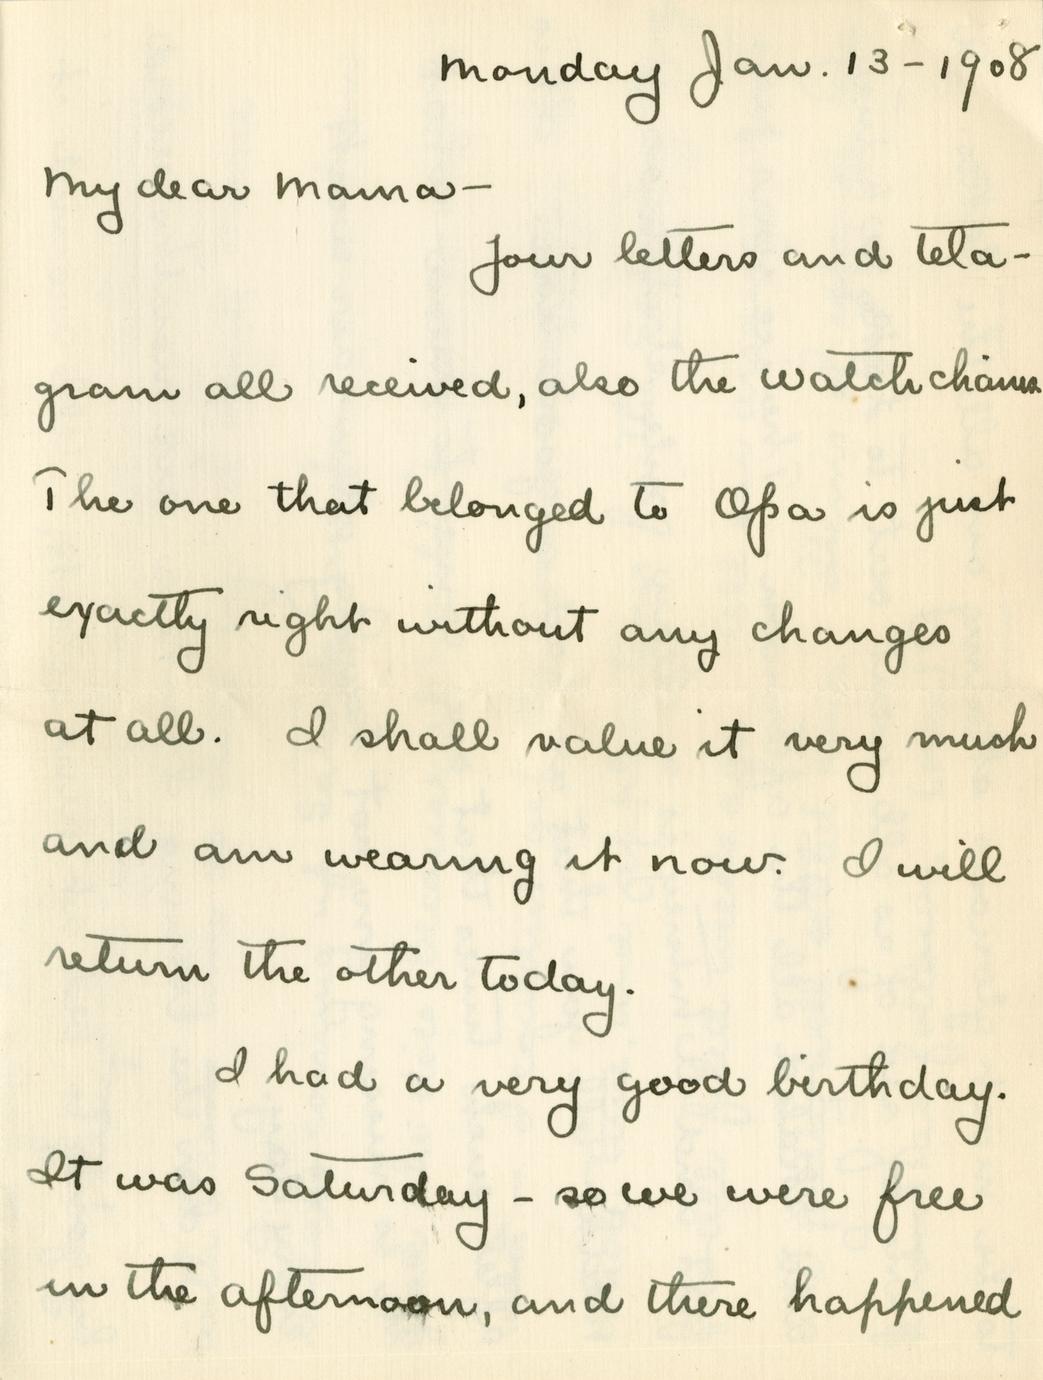 Monday Jan. 13 - 1908
My dear Mama -
Your letters and tela-
gram all received, also the watch chains
The one that belonged to Opa is just
exactly right without any changes
at all. I shall value it very much
and am wearing it now. I will
return the other today.
I had a very good birthday.
It was Saturday - so we were free
in the afternoon, and there happened